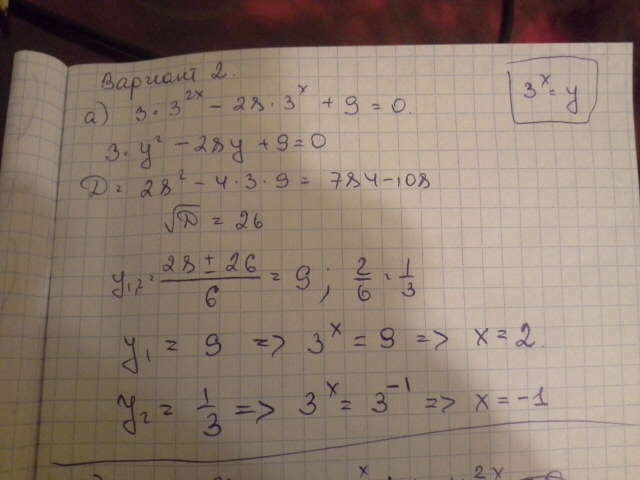 Вариант 2.
3^x = y
а) 3·3^{2x} - 28·3^x + 9 = 0.
3·y² - 28y + 9 = 0
D = 28² - 4·3·9 = 784 - 108
√D = 26
y₁,₂ = (28 ± 26)/6 = 9 ; 2/6 = 1/3
y₁ = 9 => 3^x = 9 => x = 2.
y₂ = 1/3 => 3^x = 3^{-1} => x = -1